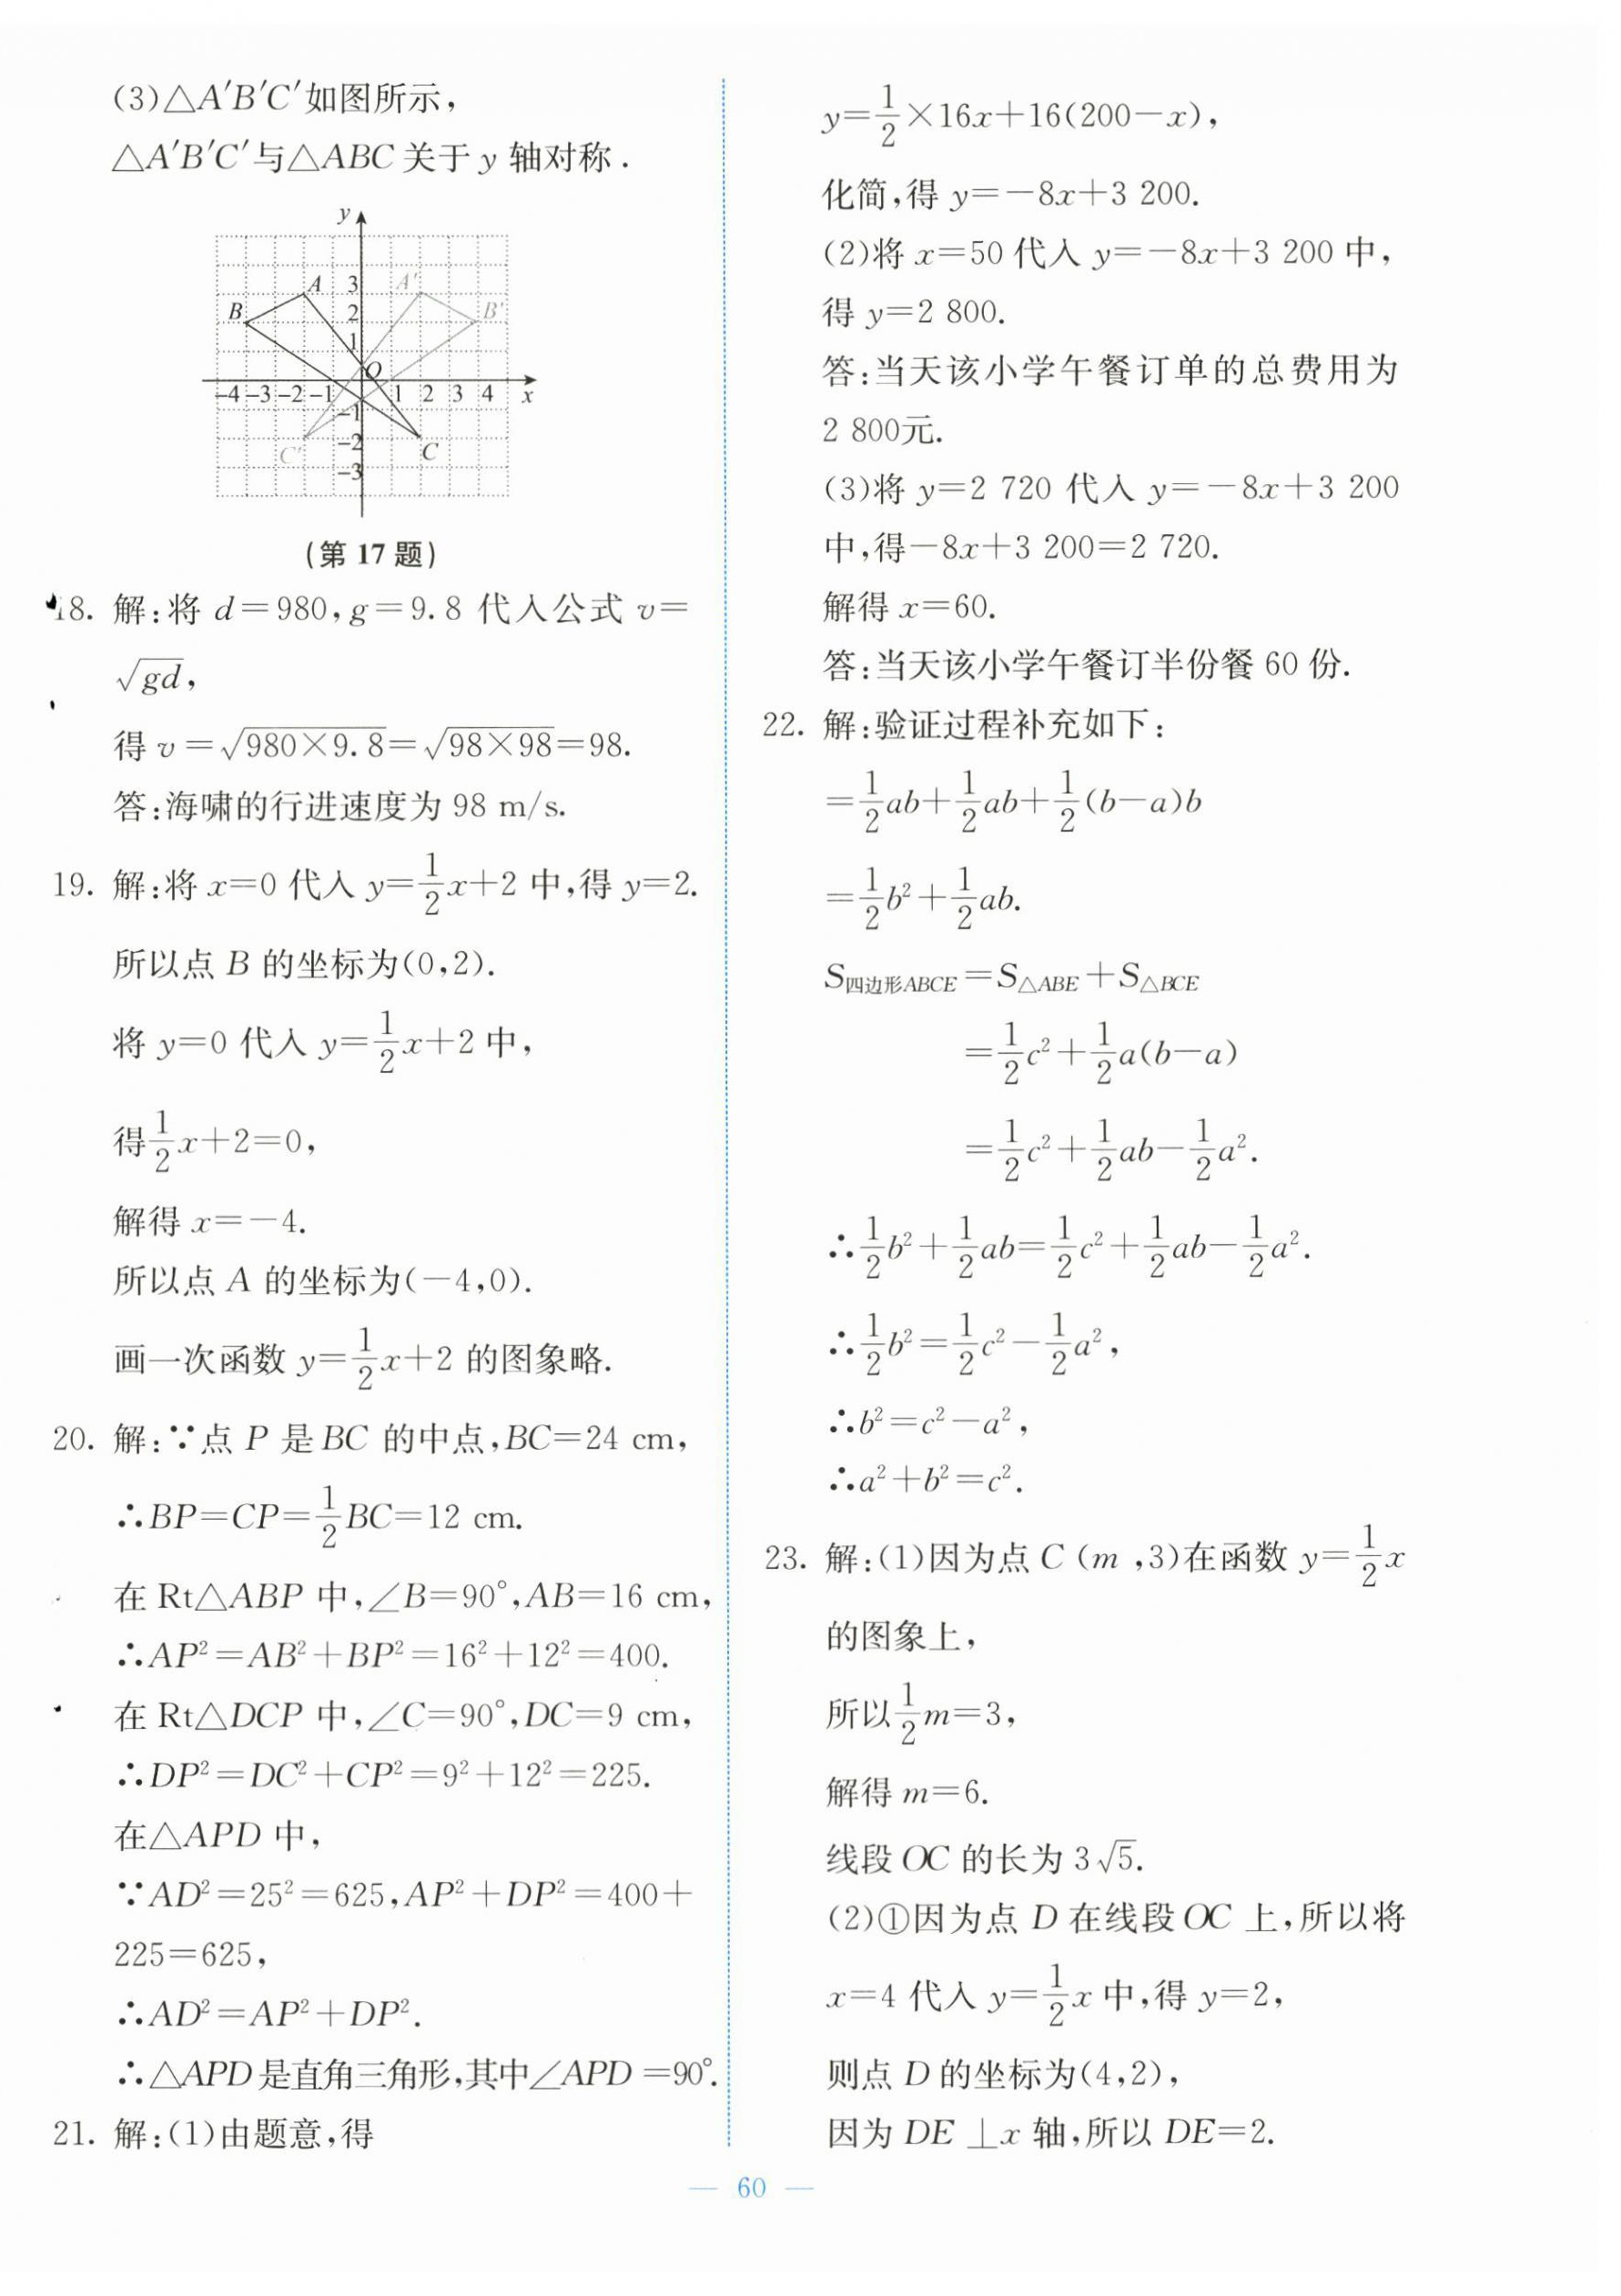 (3)△A′B′C′如图所示,
△A′B′C′与△ABC关于y轴对称.
y
A 3 A′
B 2 B′
1
O
-4 -3 -2 -1 1 2 3 4 x
-1
C′ -2 C
-3
(第17题)
18. 解:将 d=980,g=9.8 代入公式 v=
√(gd),
得 v=√(980×9.8)=√(98×98)=98.
答:海啸的行进速度为 98 m/s.
19. 解:将 x=0 代入 y=1/2x+2 中,得 y=2.
所以点 B 的坐标为(0,2).
将 y=0 代入 y=1/2x+2 中,
得1/2x+2=0,
解得 x=-4.
所以点 A 的坐标为(-4,0).
画一次函数 y=1/2x+2 的图象略.
20. 解:∵点 P 是 BC 的中点,BC=24 cm,
∴BP=CP=1/2BC=12 cm.
在 Rt△ABP 中,∠B=90°,AB=16 cm,
∴AP²=AB²+BP²=16²+12²=400.
在 Rt△DCP 中,∠C=90°,DC=9 cm,
∴DP²=DC²+CP²=9²+12²=225.
在△APD 中,
∵AD²=25²=625,AP²+DP²=400+
225=625,
∴AD²=AP²+DP².
∴△APD是直角三角形,其中∠APD=90°.
21. 解:(1)由题意,得
y=1/2×16x+16(200-x),
化简,得 y=-8x+3 200.
(2)将 x=50 代入 y=-8x+3 200 中,
得 y=2 800.
答:当天该小学午餐订单的总费用为
2 800元.
(3)将 y=2 720 代入 y=-8x+3 200
中,得-8x+3 200=2 720.
解得 x=60.
答:当天该小学午餐订半份餐 60 份.
22. 解:验证过程补充如下:
=1/2ab+1/2ab+1/2(b-a)b
=1/2b²+1/2ab.
S四边形ABCE=S△ABE+S△BCE
=1/2c²+1/2a(b-a)
=1/2c²+1/2ab-1/2a².
∴1/2b²+1/2ab=1/2c²+1/2ab-1/2a².
∴1/2b²=1/2c²-1/2a²,
∴b²=c²-a²,
∴a²+b²=c².
23. 解:(1)因为点 C(m,3)在函数 y=1/2x
的图象上,
所以1/2m=3,
解得 m=6.
线段 OC 的长为 3√5.
(2)①因为点 D 在线段 OC 上,所以将
x=4 代入 y=1/2x 中,得 y=2,
则点 D 的坐标为(4,2),
因为 DE⊥x 轴,所以 DE=2.
— 60 —